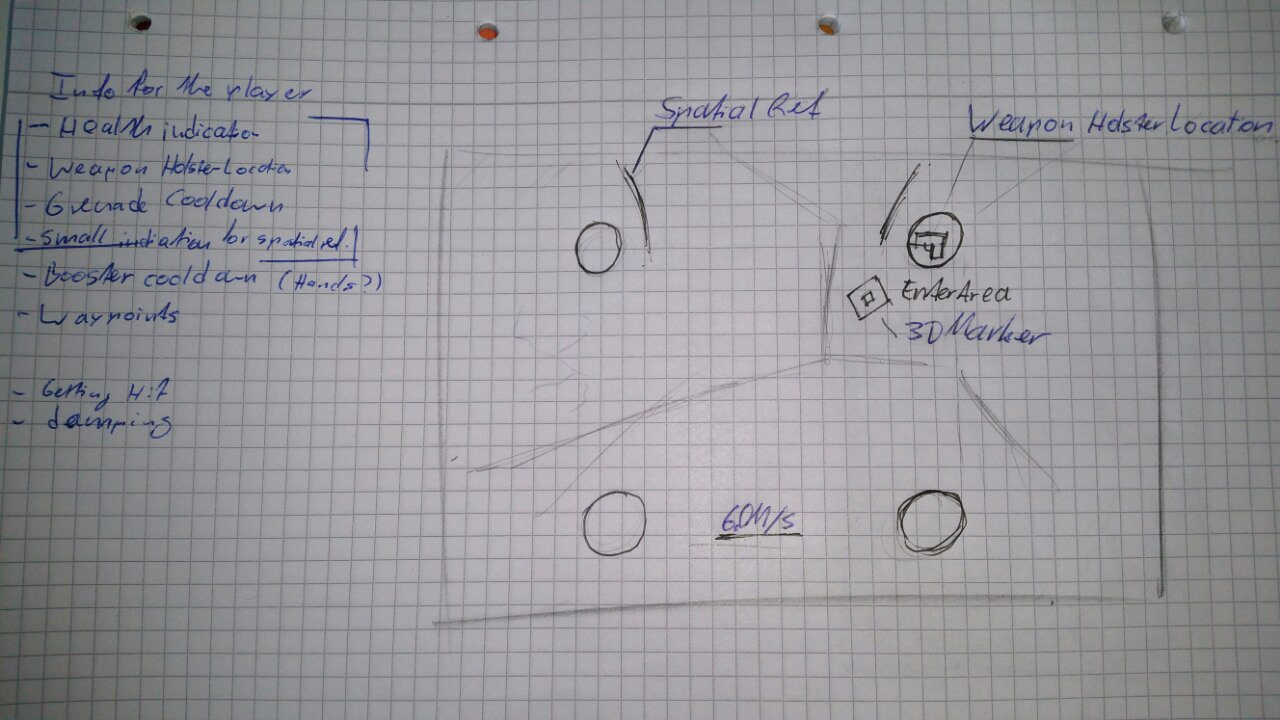 Info for the player
- Health indicator
- Weapon Holster Location
- Grenade Cooldown
- Small indiation for spatial ref.
- Booster cooldown (Hands?)
- Waypoints
- Getting Hit
- damping
Spatial Ref
Weapon Holster Location
Enter Area
3D Marker
60M/s